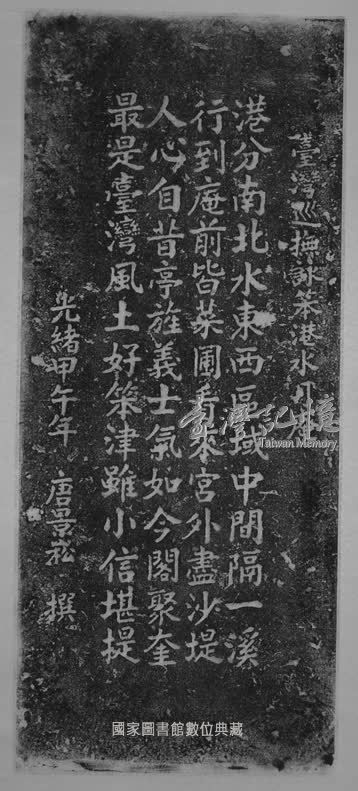 臺灣巡撫詠笨港水月庵
港分南北水東西區域中間隔一溪
行到庵前皆菜圃看來宮外盡沙堤
人心自昔亭旌義士氣如今閣聚奎
最是臺灣風土好笨津雖小信堪提
光緒甲午年 唐景崧 撰
臺灣記憶
Taiwan Memory
國家圖書館數位典藏